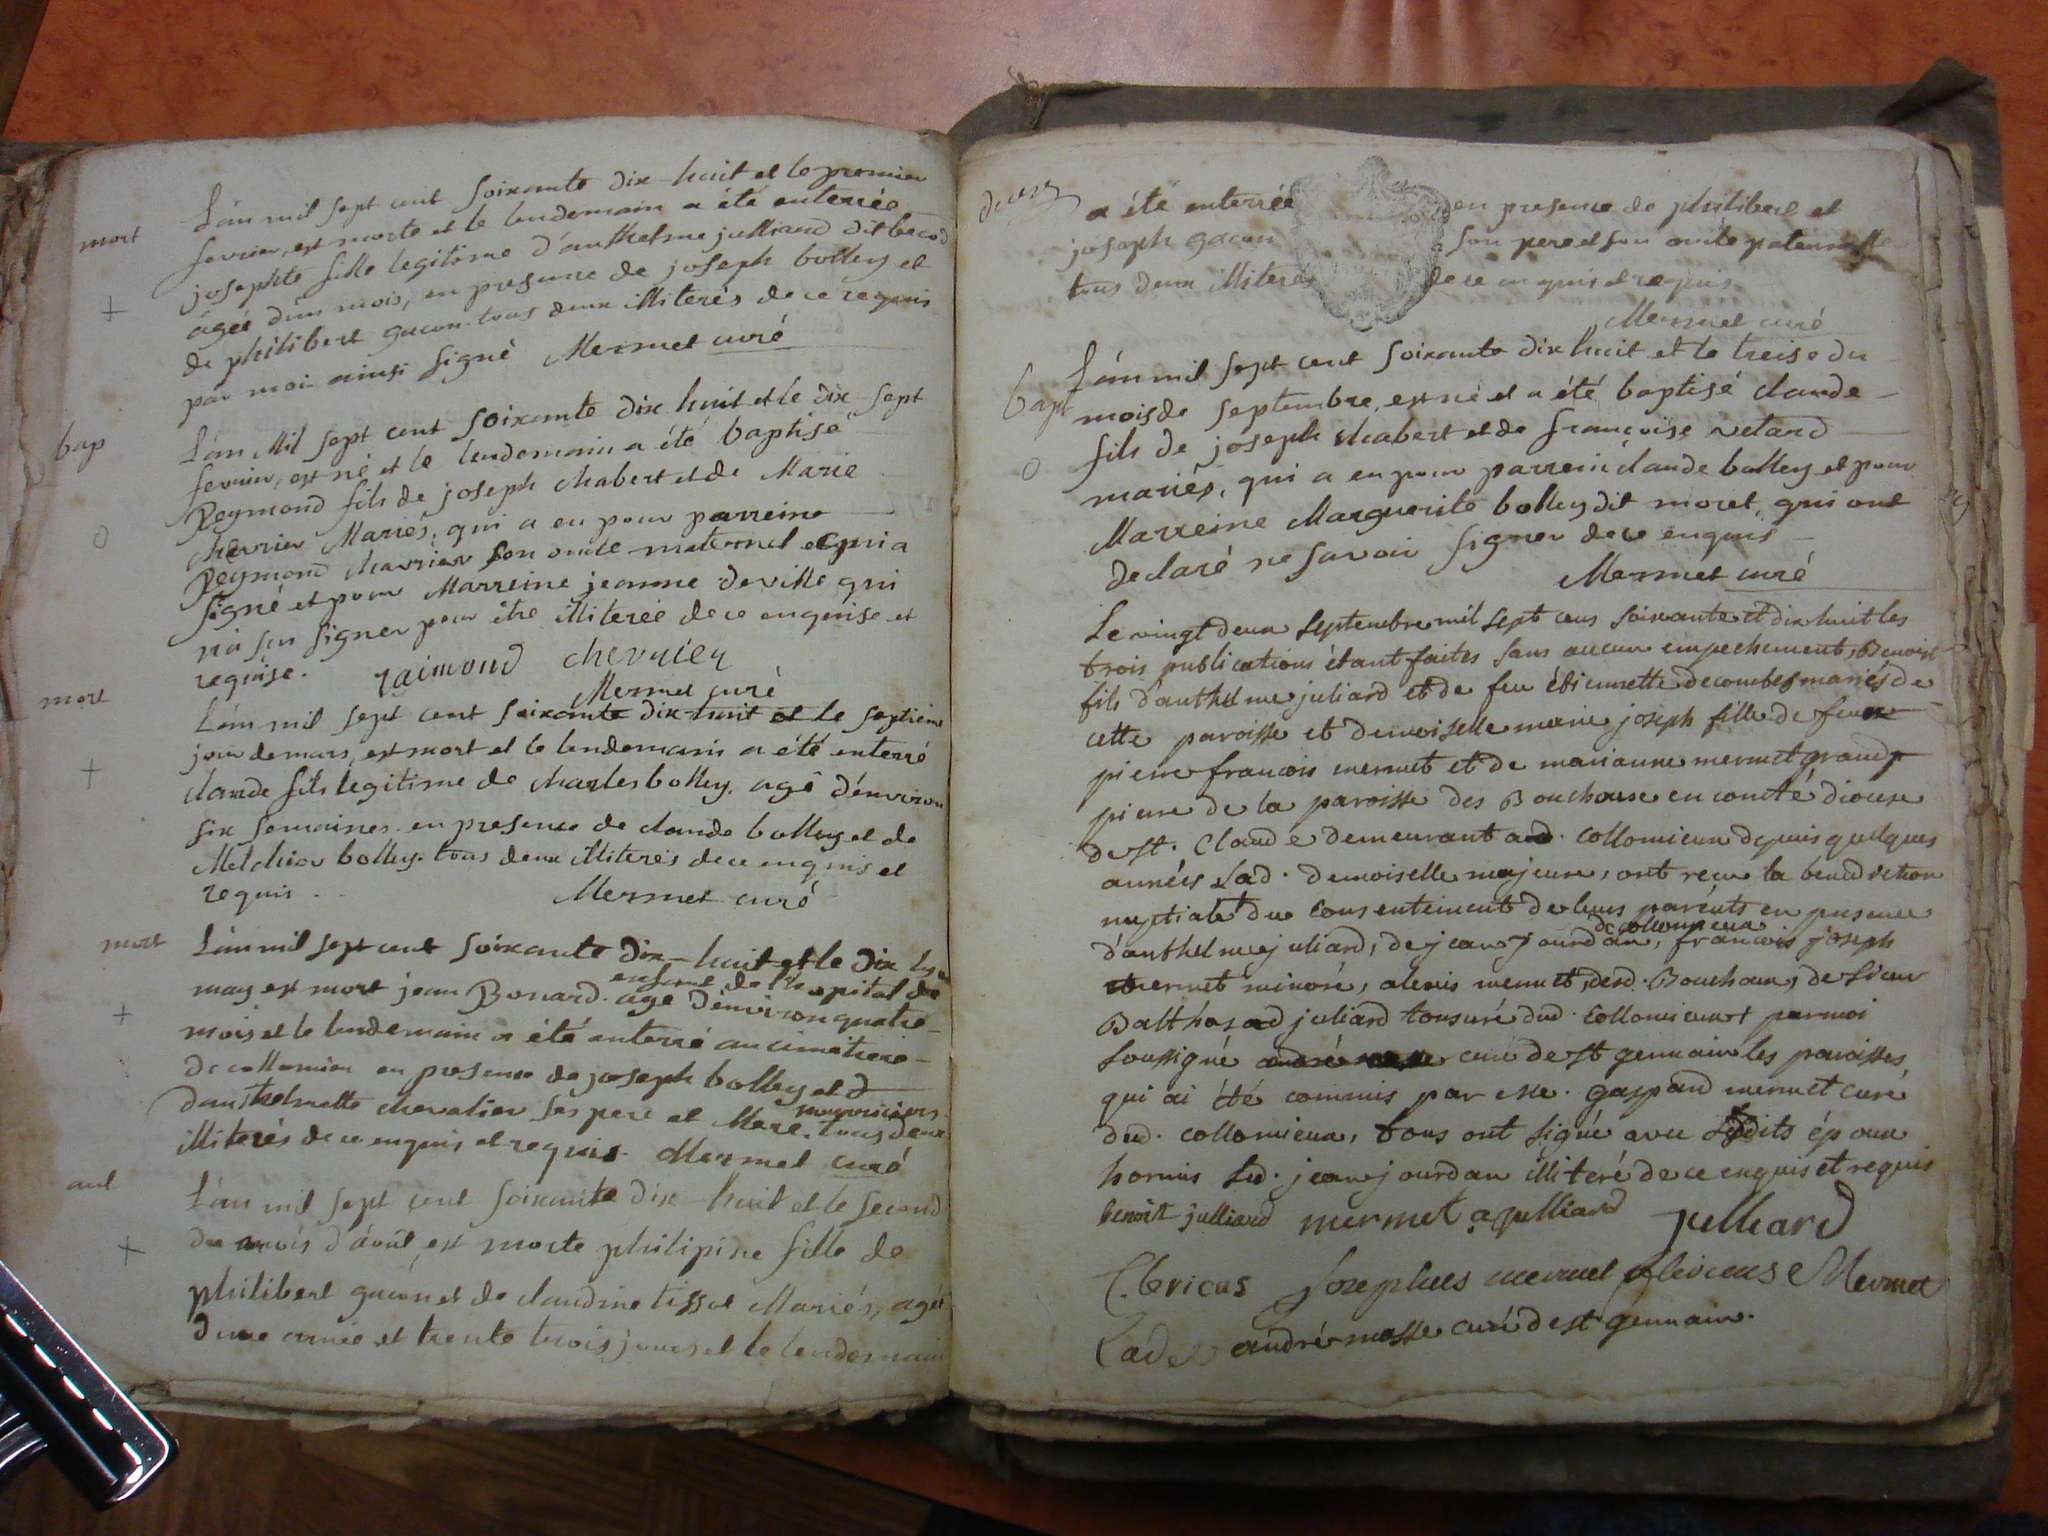 mort
L'an mil sept cent soixante dix-huit et le premier
fevrier, est morte et le lendemain a été enterrée
josephte fille legitime d'anthelme julliard dit becod
âgée d'un mois, en presence de joseph bolley et
de philibert gacon tous deux illiterés de ce requis
par moi ainsi signé Mermet curé
bap
L'an Mil sept cent soixante dix huit et le dix-sept
fevrier, est né et le lendemain a été baptisé
Reymond fils de joseph chabert et de Marie
chevrier Mariés, qui a eu pour parreine
Reymond chavrier son oncle maternel et qui a
signé et pour Marreine jeanne deville qui
n'a seu signer pour être illiterée de ce enquise et
requise. raimond chevrier
Mermet curé
mort
L'an mil sept cent soixante dix-huit et le septieme
jour de mars, est mort et le lendemain a été enterré
claude fils legitime de charles bolley. agé d'environ
six semaines. en presence de claude bolley et de
Melchior bolley. tous deux illiterés de ce enquis et
requis. Mermet curé
mort
L'an mil sept cent soixante dix-huit et le dix
enfant de l'opital de
may est mort jean Bonard. agé d'environ quatre
mois et le lendemain a été enterré au cimetiere
de collomieu en presence de joseph bolley et d
d'anthelmette chevalier ses pere et Mere nourriciers. tous deux
illiterés de ce enquis et requis. Mermet curé
L'an mil sept cent soixante dix-huit et le second
du mois d'août, est morte philipine fille de
philibert gacon et de claudine tissot Mariés, agée
d'une année et trente trois jours et le lendemain
a été enterrée en presence de philibert et
joseph gacon son pere et son oncle paternelle
tous deux illiterés de ce enquis et requis
Mermet curé
bapt
L'an mil sept cent soixante dix huit et le treise du
mois de septembre, est né et a été baptisé claude
fils de joseph chabert et de françoise velard
mariés, qui a eu pour parrein claude bolley et pour
Marreine Marguerite bolley dit moret, qui ont
declaré ne savoir signer de ce enquis
Mermet curé
Le vingt deux septembre mil sept cens soixante et dix huit les
trois publications étant faites sans aucun empechement, Benoist
fils d'anthelme juliard et de feu étiennette decombes mariés de
cette paroisse et demoiselle marie joseph fille de feu
pierre françois mermet et de marianne mermet grand
pierre de la paroisse des Bouchoux en comté diocese
de st. Claude demeurant aud. collomieux depuis quelques
années Lad. demoiselle majeure, ont reçu la benediction
nuptiale du consentement de leurs parents en presence
de collomieux
d'anthelme juliard, de jean jourdan, françois joseph
mermet minoré, alexis mermet, desd. Bouchoux, de sieur
Balthasad juliard tonsuré dud. collomieux et par moi
soussigné curé de st germain les paroisses
qui ai été commis par me. gaspard mermet curé
dud. collomieux, tous ont signé avec lesdits époux
hormis led. jean jourdan illiteré de ce enquis et requis
benoit julliard mermet a julliard julliard
Clericus Josephus mermet Clericus Mermet
Cadet andré masse curé de st germain.